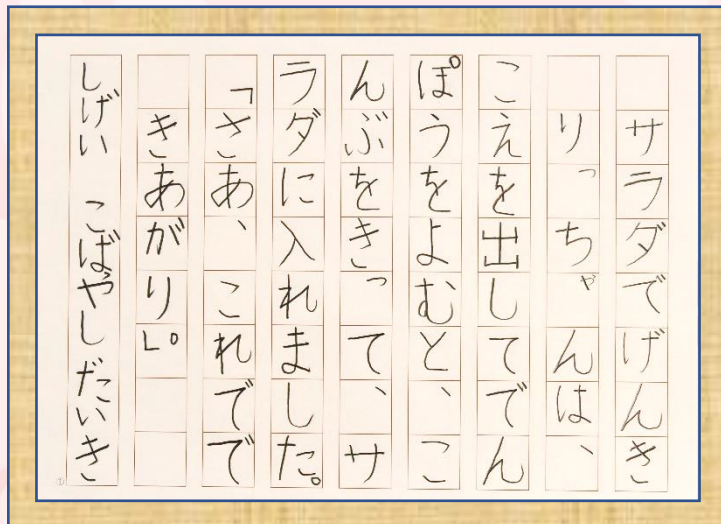 サラダでげんき
りっちゃんは、
こえを出してでん
ぽうをよむと、こ
んぶをきって、サ
ラダに入れました。
「さあ、これでで
きあがり」。
しげい こばやしだいき